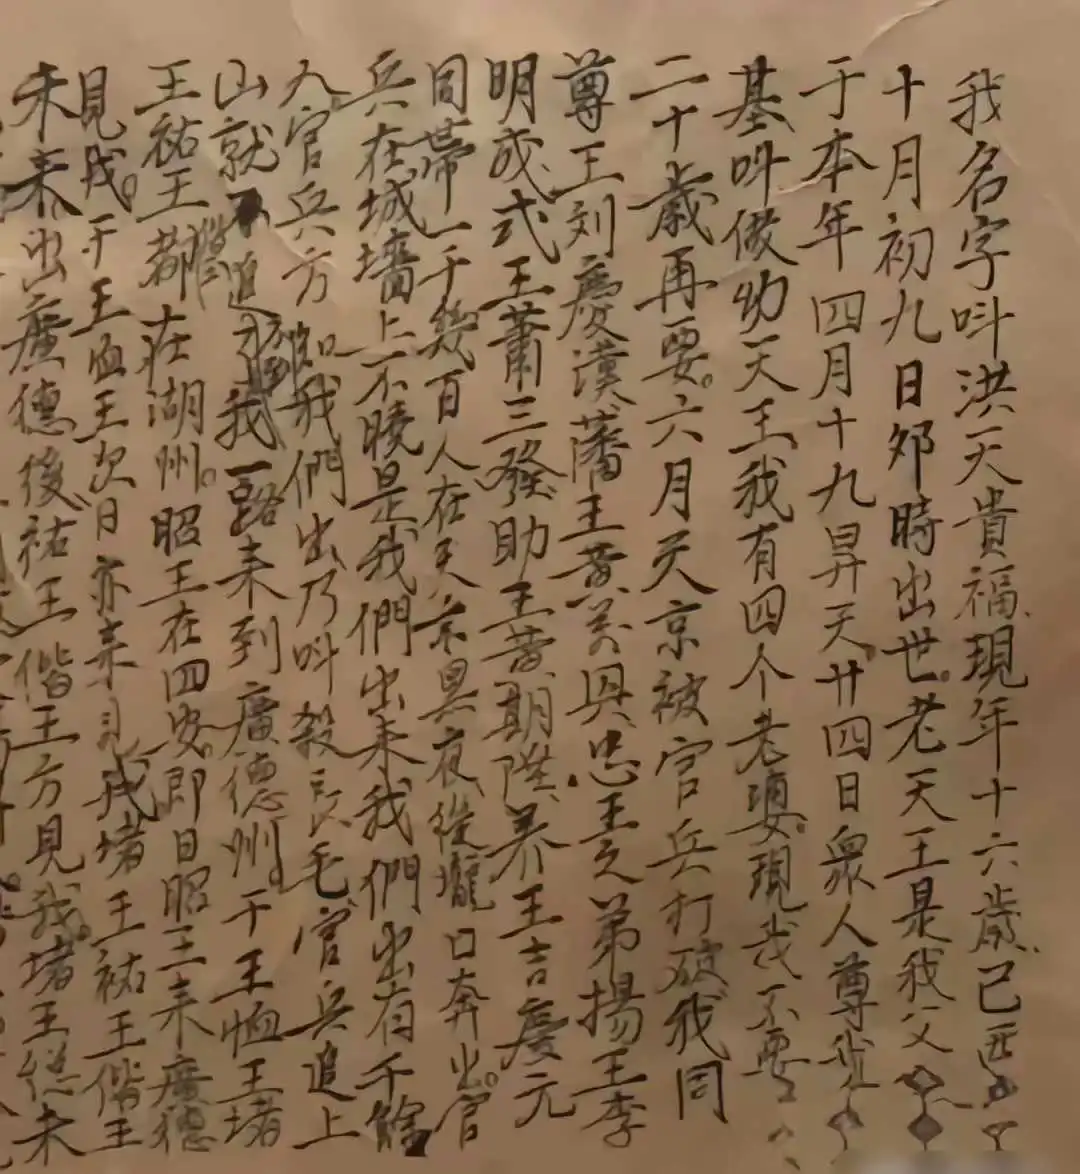 我名字呌洪天貴福現年十六歲己酉
十月初九日夘時出世老天王是我父
于本年四月十九昇天廿四日眾人尊我
基呌做幼天王我有四个老婆現我不要
二十歲再要六月天京被官兵打破我同
尊王刘慶漢藩王黃萬興忠王之弟揚王李
明成式王蕭三發助王黃期陞養王吉慶元
同帶一千幾百人在天京具夜從壠口奔出官
兵在城墻上不曉是我們出來我們出有千餘
人官兵方知我們出乃呌殺長毛官兵追上
山就追我一路來到廣德州干王恤王堵
王祐王都偕在湖州昭王在四安即日昭王來廣德
見我干王恤王次日亦來見我堵王祐王偕王
未來出廣德後祐王偕王方見我堵王總未